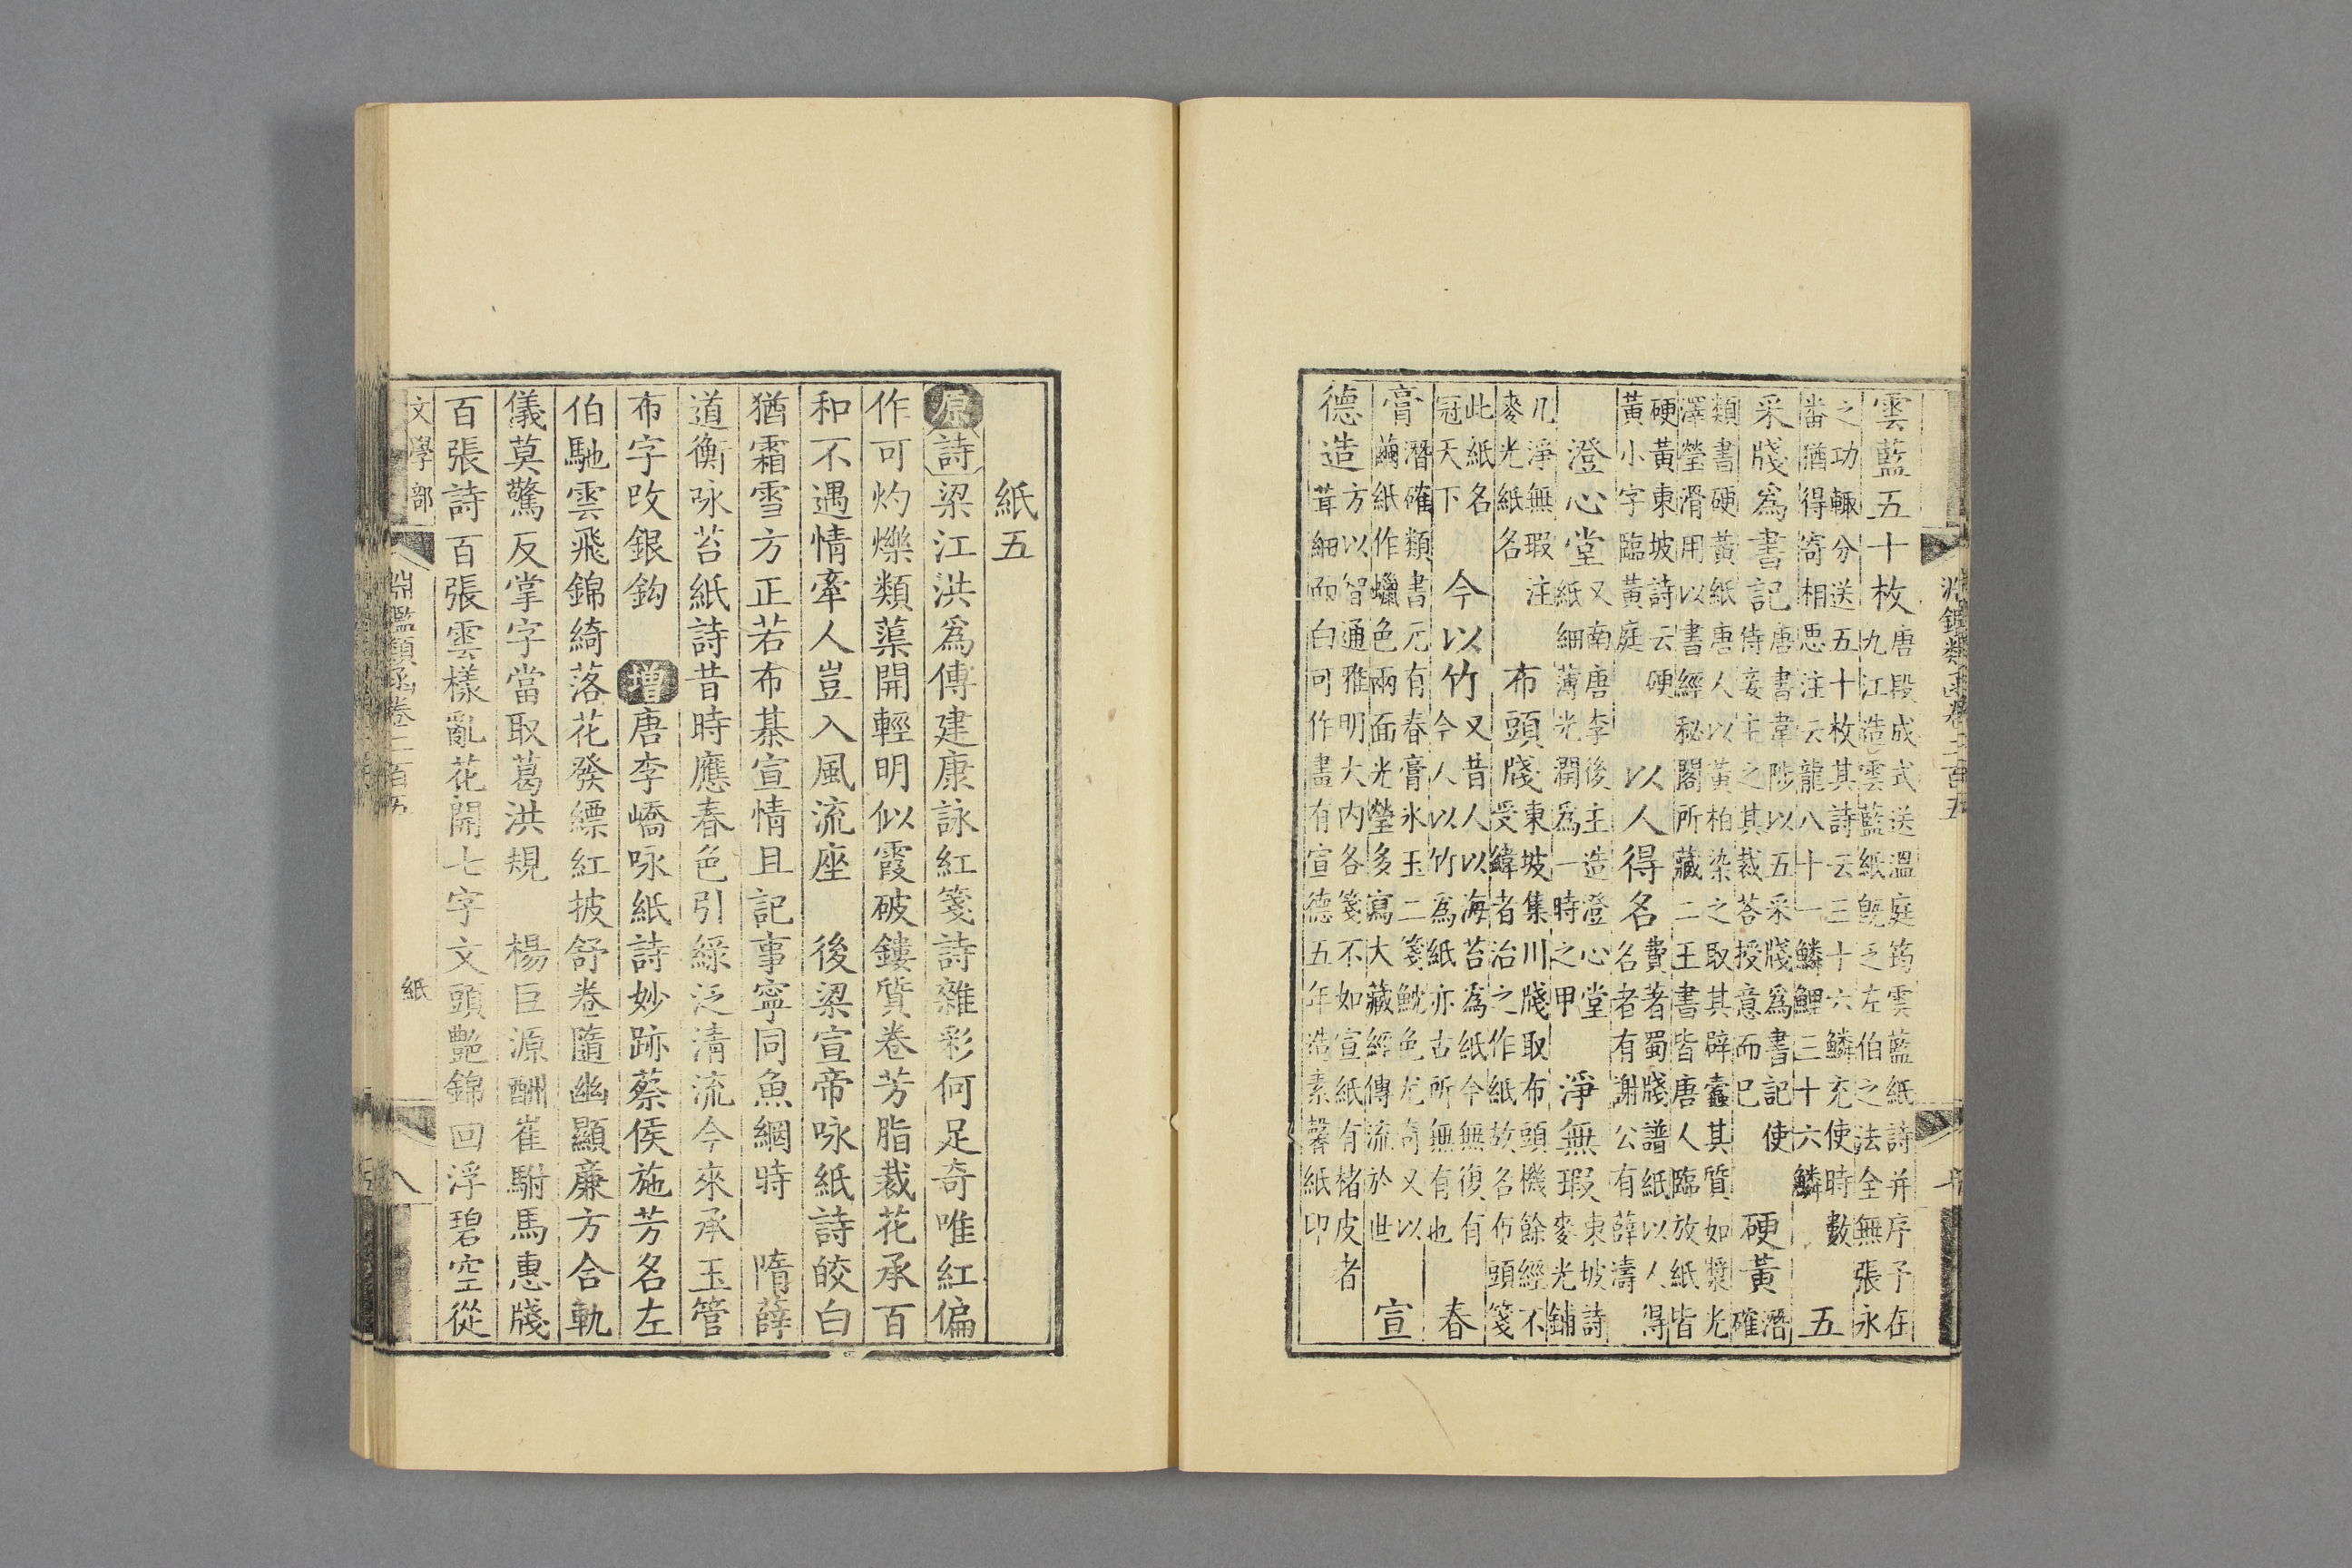 淵鑑類函卷二百五
雲藍五十枚
唐段成式送溫庭筠雲藍紙詩并序予在
九江造雲藍紙旣乏左伯之法全無張永
之功輙分送五十枚其詩云三十六鱗充使時數
番猶得寄相思注云龍八十一鱗鯉三十六鱗
五
采牋爲書記
唐書韋陟以五采牋爲書記使
侍妾主之其裁答授意而已
硬黃
潛
確
類書硬黃紙唐人以黃柏染之取其辟蠧其質如漿光
澤瑩滑用以書經秘閣所藏二王書皆唐人臨放紙皆
硬黃東坡詩云硬
黃小字臨黃庭
以人得名
費著蜀牋譜紙以人得
名者有謝公有薛濤
澄心堂
又南唐李後主造澄心堂
紙細薄光潤爲一時之甲
淨無瑕
東坡詩
麥光鋪
几淨無瑕注
麥光紙名
布頭牋
東坡集川牋取布頭機餘經不
受緯者治之作紙故名布頭箋
此紙名
冠天下
今以竹
又昔人以海苔為紙今無復有
今人以竹為紙亦古所無有也
春
膏
潛確類書元有春膏氷玉二箋魷色尤奇又以
繭紙作蠟色兩面光瑩多寫大藏經傳流於世
宣
德造
方以智通雅明大內各箋不如宣紙有楮皮者
茸細而白可作畫有宣德五年造素馨紙印
紙五
原詩梁江洪爲傅建康詠紅箋詩雜彩何足奇唯紅偏
作可灼爍類蕖開輕明似霞破鏤質卷芳脂裁花承百
和不遇情牽人豈入風流座 後梁宣帝咏紙詩皎白
猶霜雪方正若布棊宣情且記事寧同魚網時 隋薛
道衡咏苔紙詩昔時應春色引綠泛清流今來承玉管
布字改銀鈎 增唐李嶠咏紙詩妙跡蔡侯施芳名左
伯馳雲飛錦綺落花發縹紅披舒卷隨幽顯廉方合軌
儀莫驚反掌字當取葛洪規 楊巨源酬崔駙馬惠牋
百張詩百張雲樣亂花開七字文頭艷錦回浮碧空從
文學部
淵鑑類函卷二百五
紙
八